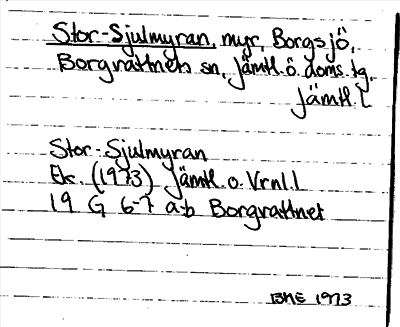 Stor-Sjulmyran, myr, Borgsjö,
Borgvattnets sn, Jämtl.ö. doms.tg.
Jämtl. L
Stor-Sjulmyran
Ek. (1973) Jämtl. o. Vrnl.l
19 G 6-7 a-b Borgvattnet
BHE 1973